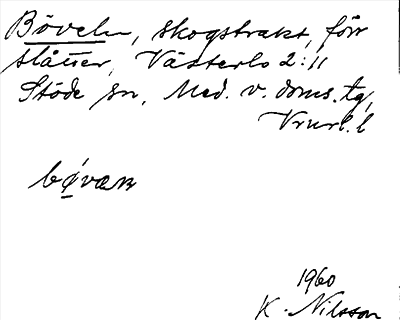 Böveln, skogstrakt, förr
slåtter, Västerlo 2:11
Stöde sn, Med. v. doms. tg,
Vnrl. l
bǿvæn
1960
K. Nilsson